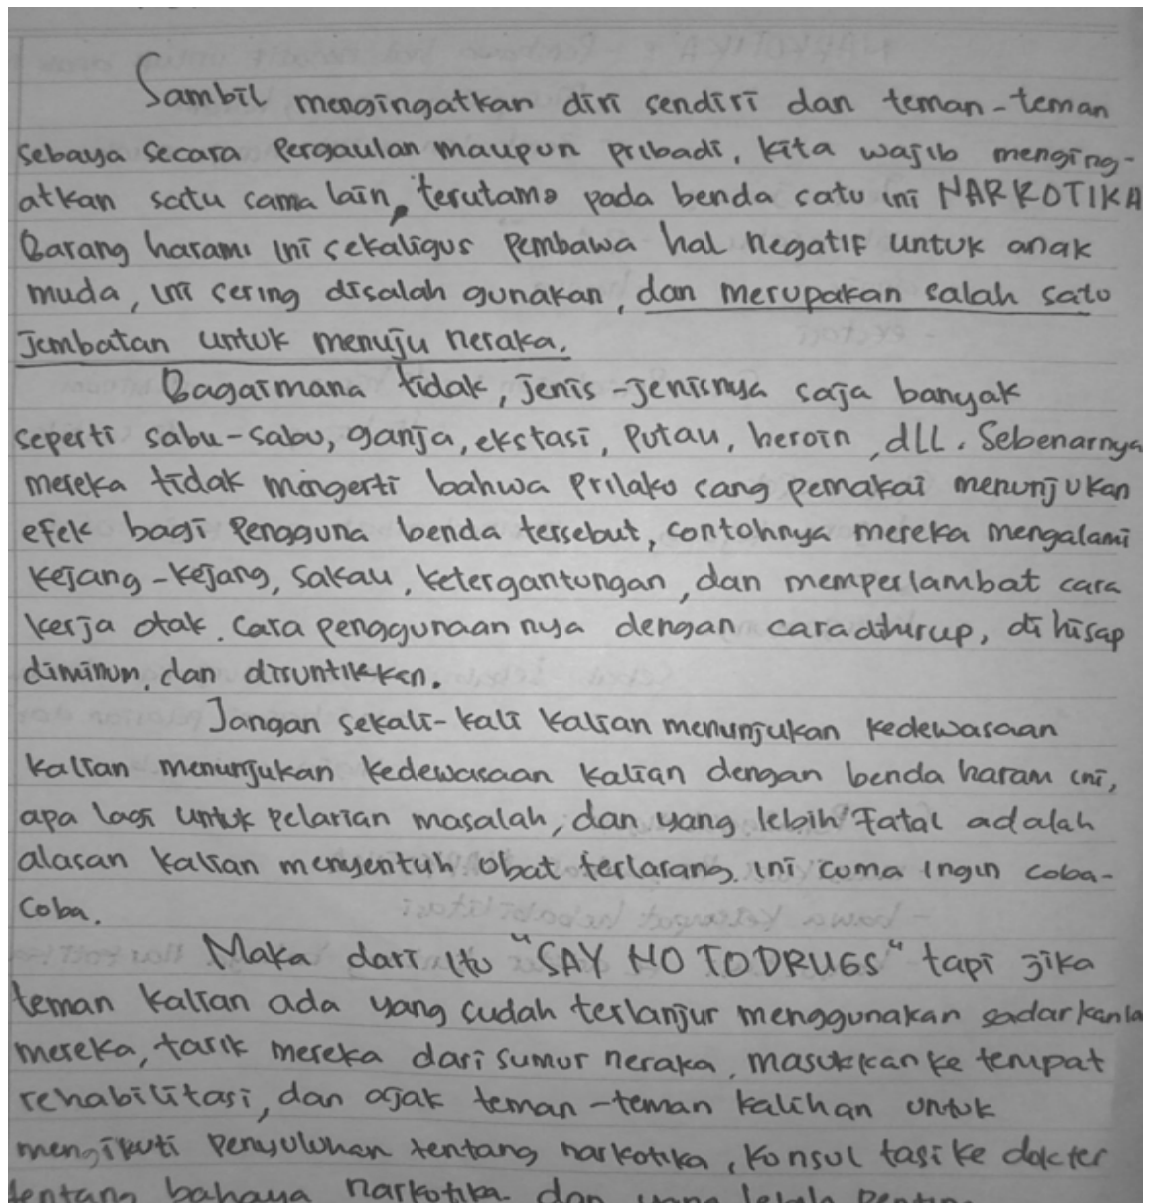 Sambil mengingatkan diri sendiri dan teman-teman
sebaya secara pergaulan maupun pribadi, kita wajib menging-
atkan satu sama lain, terutama pada benda satu ini NARKOTIKA
Barang haram ini sekaligus pembawa hal negatif untuk anak
muda, ini sering disalah gunakan, dan merupakan salah satu
jembatan untuk menuju neraka.
Bagaimana tidak, jenis-jenisnya saja banyak
seperti sabu-sabu, ganja, ekstasi, putau, heroin, dLL. Sebenarnya
mereka tidak mengerti bahwa prilaku sang pemakai menunjukan
efek bagi pengguna benda tersebut, contohnya mereka mengalami
kejang-kejang, sakau, ketergantungan, dan memperlambat cara
kerja otak. Cara penggunaan nya dengan cara dihirup, di hisap
diminum, dan disuntikkan.
Jangan sekali-kali kalian menunjukan kedewasaan
kalian menunjukan kedewasaan kalian dengan benda haram ini,
apa lagi untuk pelarian masalah, dan yang lebih Fatal adalah
alasan kalian menyentuh obat terlarang ini cuma ingin coba-
coba.
Maka dari itu "SAY NO TO DRUGS" tapi jika
teman kalian ada yang sudah terlanjur menggunakan sadarkanla
mereka, tarik mereka dari sumur neraka, masukkan ke tempat
rehabilitasi, dan ajak teman-teman kalihan untuk
mengikuti penyuluhan tentang narkotika, konsul tasi ke dokter
tentang bahaya narkotika dan yang lebih penting